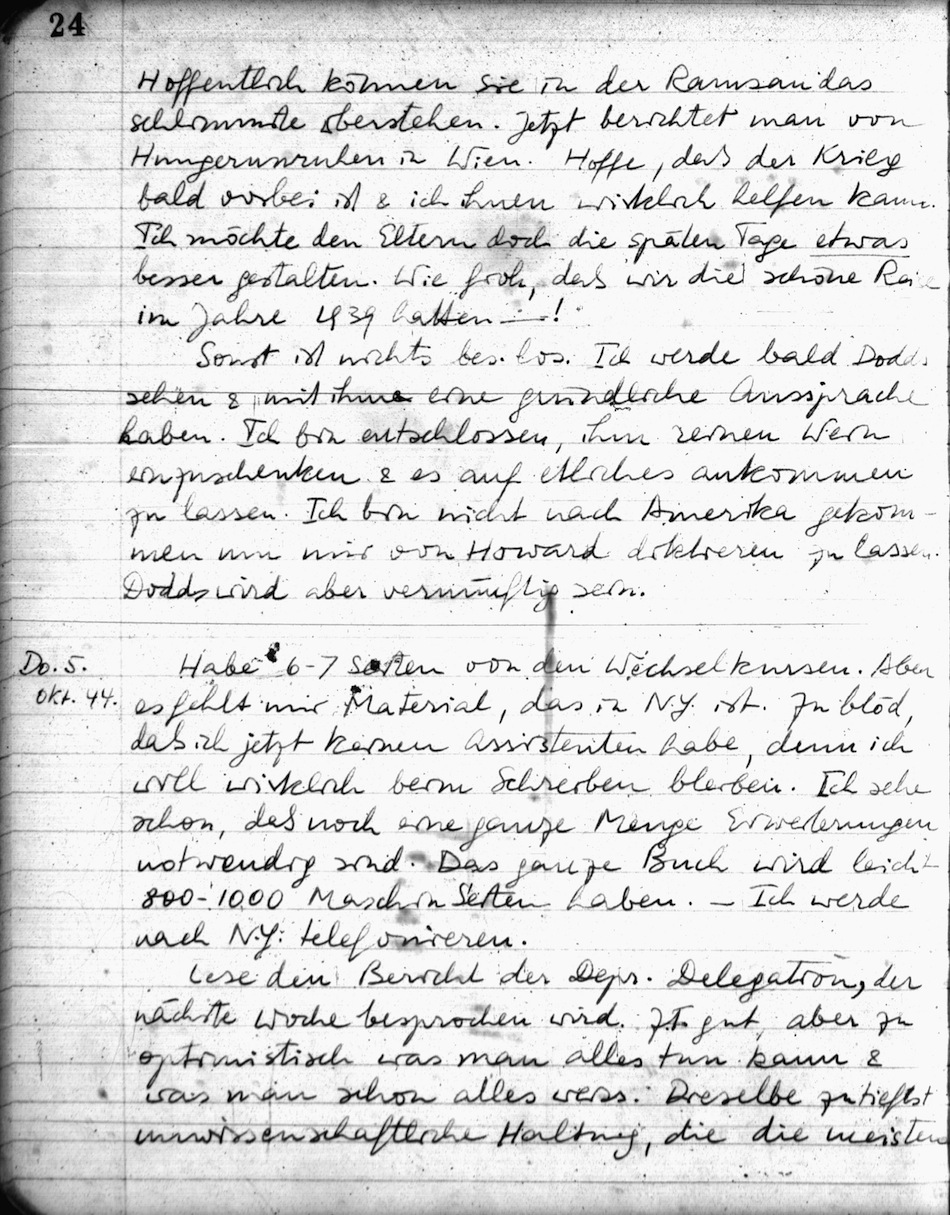 24
Hoffentlich können sie in der Ramsau das
schlimmste überstehen. Jetzt berichtet man von
Hungerunruhen in Wien. Hoffe, daß der Krieg
bald vorbei ist & ich ihnen wirklich helfen kann.
Ich möchte den Eltern doch die späten Tage etwas
besser gestalten. Wie froh, daß wir die schöne Reise
im Jahre 1939 hatten —!
Sonst ist nichts bes. los. Ich werde bald Dodds
sehen & mit ihm eine gründliche Aussprache
haben. Ich bin entschlossen, ihm reinen Wein
einzuschenken & es auf etliches ankommen
zu lassen. Ich bin nicht nach Amerika gekom-
men um mir von Howard diktieren zu lassen.
Dodds wird aber vernünftig sein.
Do. 5.
Okt. 44.
Habe 6-7 Seiten von den Wechselkursen. Aber
es fehlt mir Material, das in N.Y. ist. Zu blöd,
daß ich jetzt keinen Assistenten habe, denn ich
will wirklich beim Schreiben bleiben. Ich sehe
schon, daß noch eine ganze Menge Erweiterungen
notwendig sind. Das ganze Buch wird leicht
800-1000 Maschin Seiten haben. — Ich werde
nach N.Y. telefonieren.
Lese den Bericht der Depr. Delegation, der
nächste Woche besprochen wird. Ist gut, aber zu
optimistisch was man alles tun kann &
was man schon alles weiss. Dieselbe zutiefst
unwissenschaftliche Haltung, die die meisten